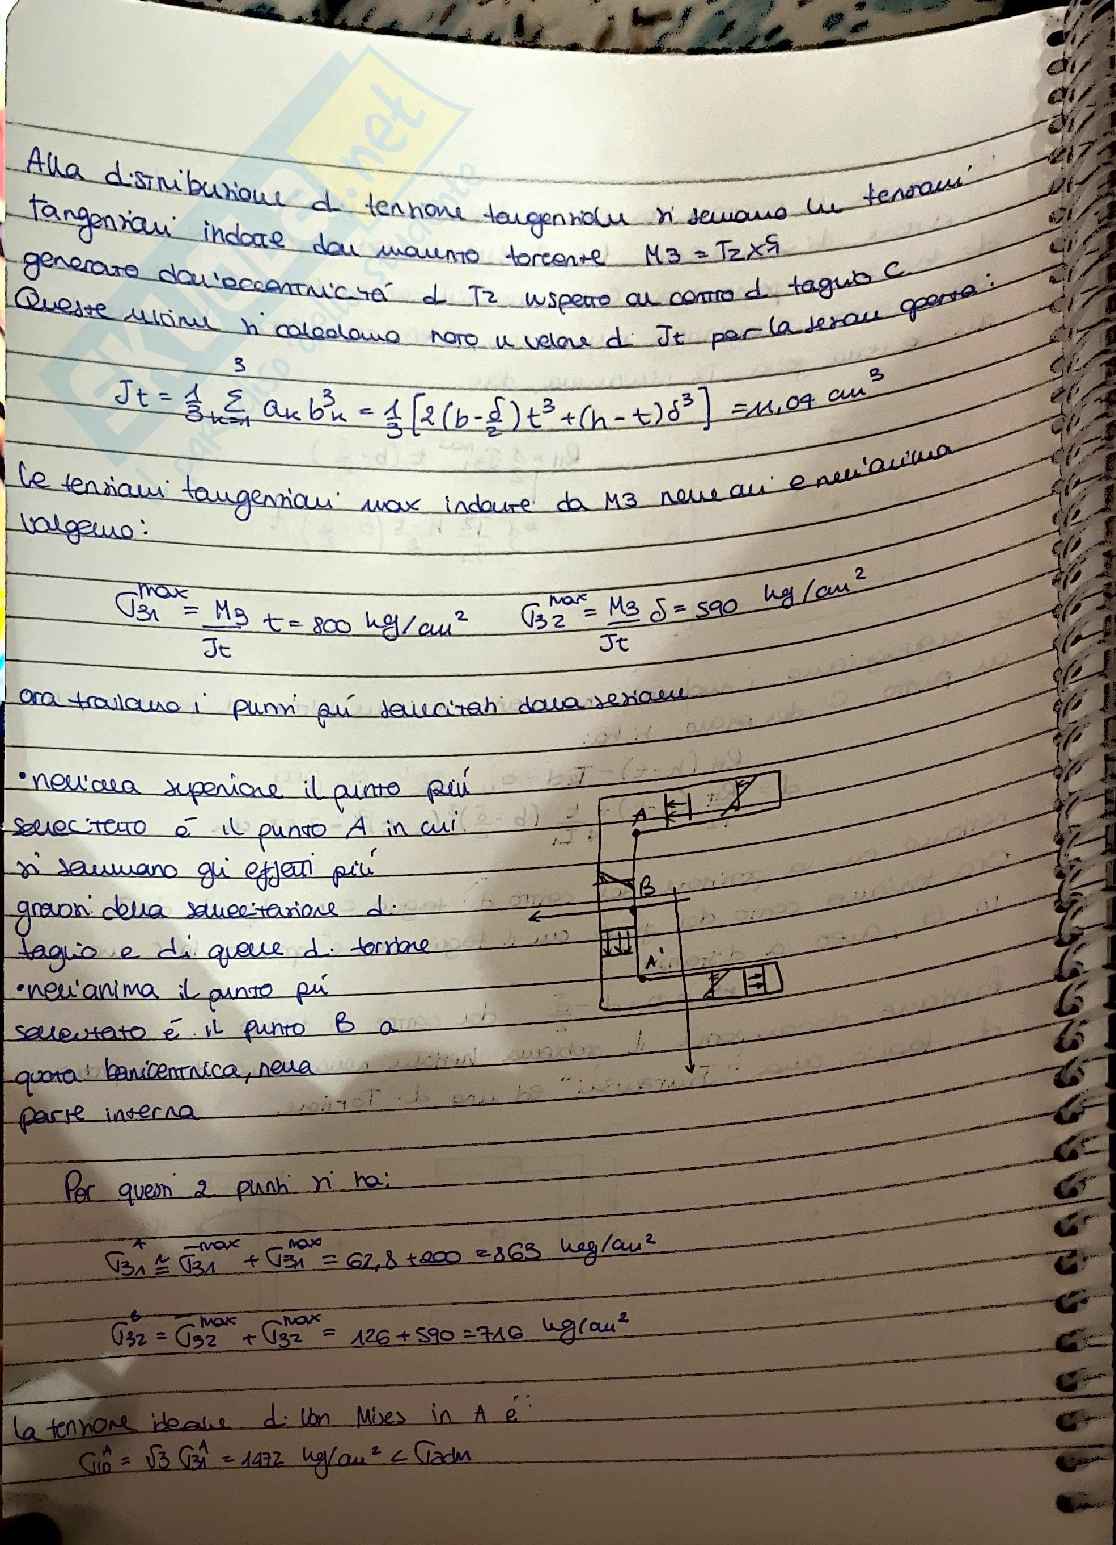 Alla distribuzione di tensione tangenziale si sommano le tensioni
tangenziali indotte dal momento torcente M3 = T2 x
generato dall'eccentricità di T2 rispetto al centro di taglio C
Queste ultime si calcolano noto il valore di Jt per la sezione aperta:
Jt = 1/3 3Σk=1 ak b³k = 1/3 [2(b-δ/2)t³+(h-t)δ³] = 11,04 cm³
le tensioni tangenziali max indotte da M3 nelle ali e nell'anima
valgono:
σ31 max = M3/Jt t = 800 kg/cm² σ32 max = M3/Jt δ = 590 kg/cm²
ora troviamo i punti più sollecitati della sezione
• nell'ala superiore il punto più
sollecitato è il punto A in cui
si sommano gli effetti più
gravosi della sollecitazione di
taglio e di quelle di torsione
• nell'anima il punto più
sollecitato è il punto B a
quota baricentrica, nella
parte interna
A
B
A'
Per questi 2 punti si ha:
σ31 A ≅ σ̄31 max + σ31 max = 62,8 + 800 = 863 kg/cm²
σ32 B = σ̄32 max + σ32 max = 126 + 590 = 716 kg/cm²
la tensione ideale di Von Mises in A è:
σid A = √3 σ31 A = 1472 kg/cm² < σadm